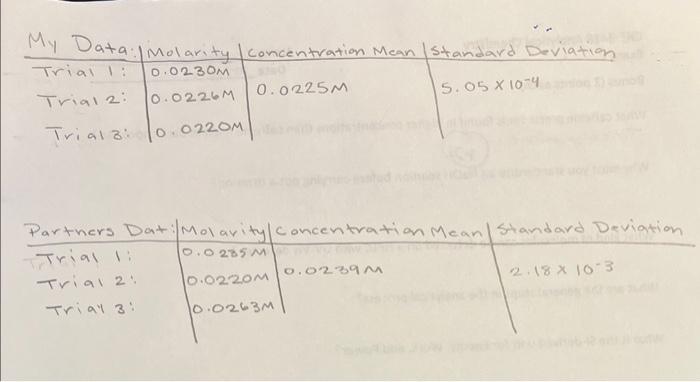 My Data: Molarity Concentration Mean Standard Deviation
Trial 1: 0.0230M
Trial 2: 0.0226M 0.0225M 5.05 X 10-4
Trial 3: 0.0220M
Partners Dat: Molarity Concentration Mean Standard Deviation
Trial 1: 0.0235M
Trial 2: 0.0220M 0.0239M 2.18 X 10-3
Trial 3: 0.0263M